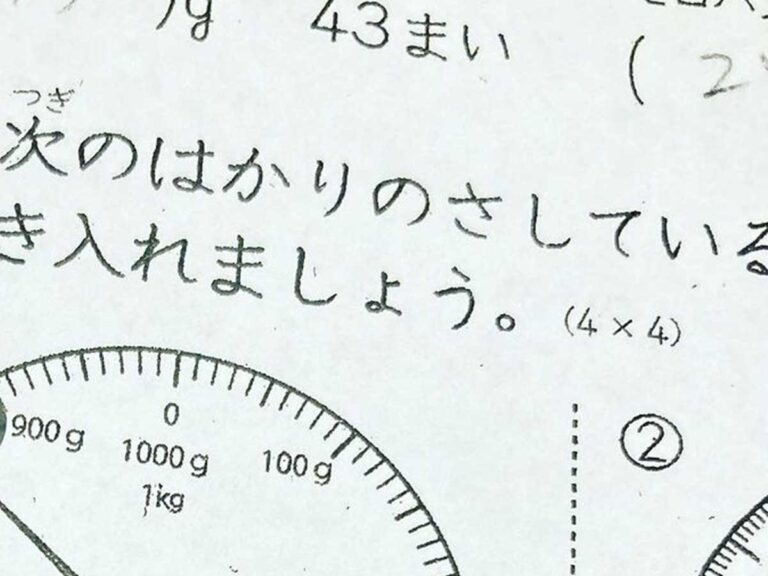 g 43まい
( 2
つぎ
次のはかりのさしている
き入れましょう。(4×4)
0
900g 1000g 100g
1kg
②